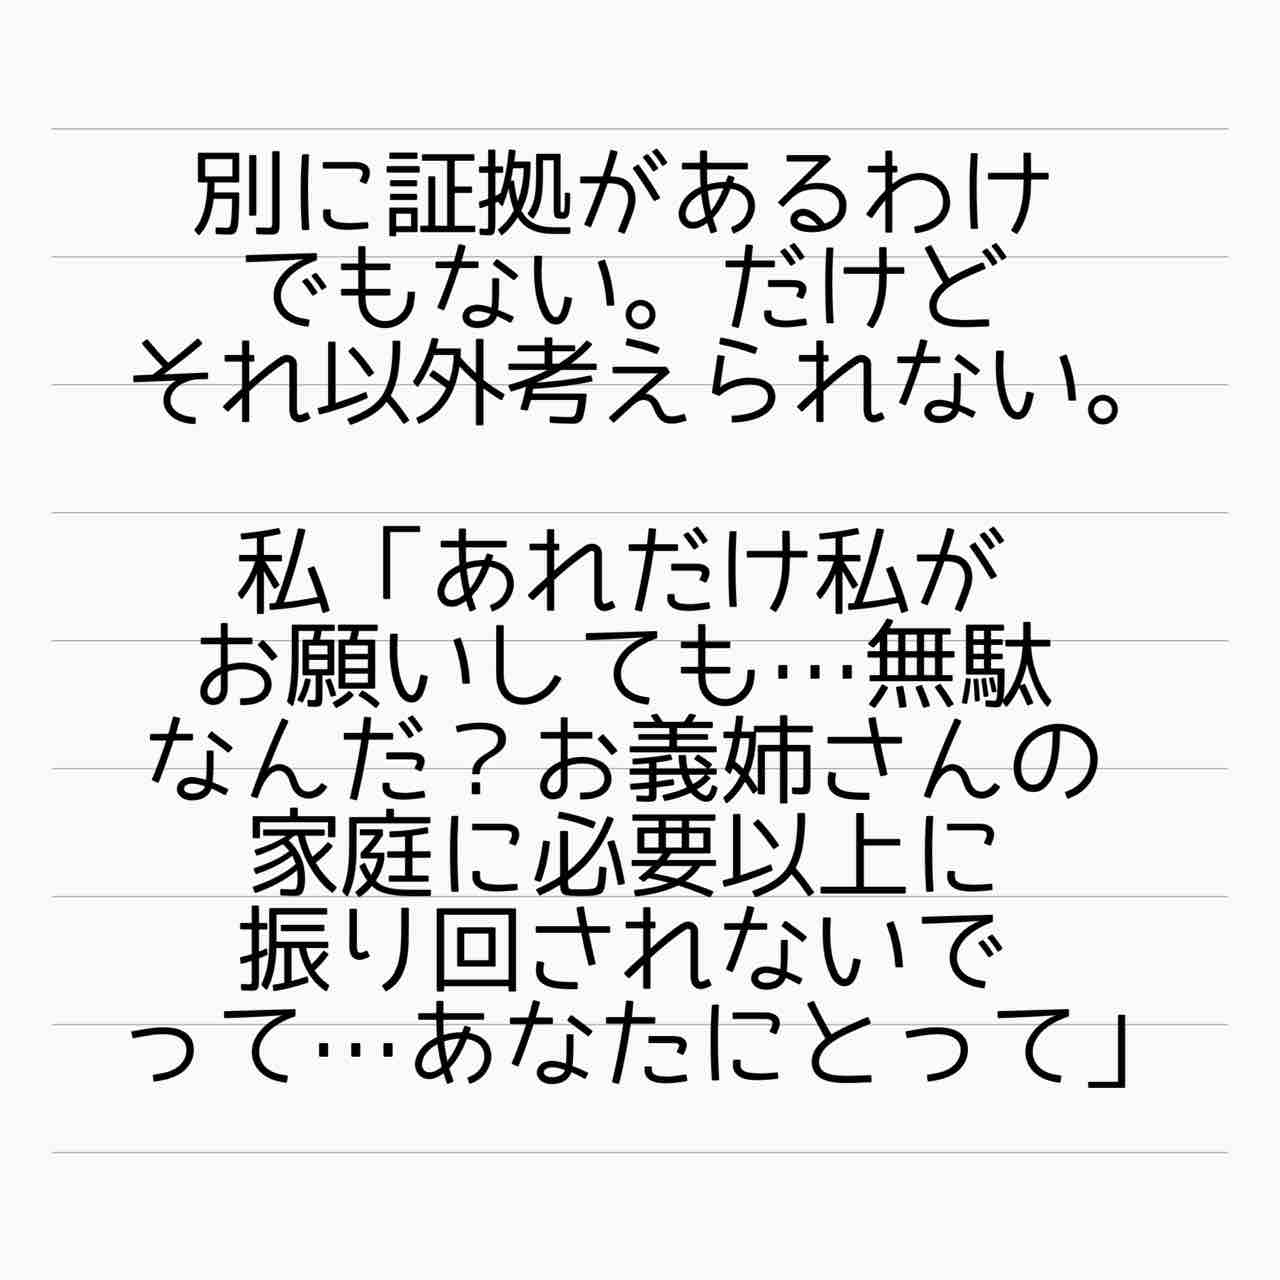 別に証拠があるわけ
でもない。だけど
それ以外考えられない。
私「あれだけ私が
お願いしても…無駄
なんだ？お義姉さんの
家庭に必要以上に
振り回されないで
って…あなたにとって」